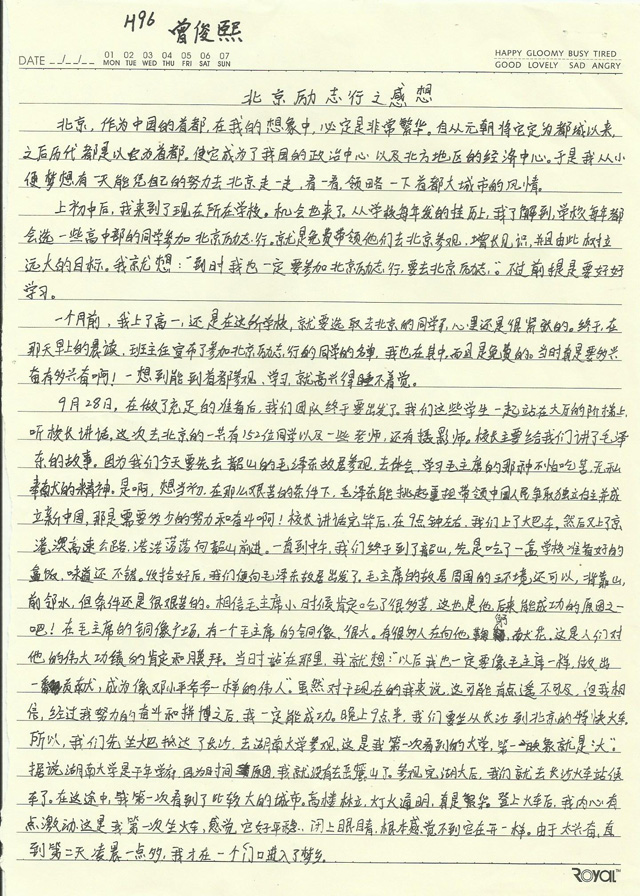 H96 曾俊熙
DATE __/__/__ 01 MON 02 TUE 03 WED 04 THU 05 FRI 06 SAT 07 SUN HAPPY GLOOMY BUSY TIRED
GOOD LOVELY SAD ANGRY
北京励志行之感想
北京,作为中国的首都,在我的想象中,必定是非常繁华。自从元朝将它定为都城以来,
之后历代都是以它为首都。使它成为了我国的政治中心以及北方地区的经济中心。于是我从小
便梦想有一天能凭自己的努力去北京走一走,看一看,领略一下首都大城市的风情。
上初中后,我来到了现在所在学校。机会也来了。从学校每年发的挂历上,我了解到,学校每年都
会选一些高中部的同学参加北京励志行。就是免费带领他们去北京参观,增长见识,并且由此树立
远大的目标。我就想:“到时我也一定要参加北京励志行,要去北京励志。”不过前提是要好好
学习。
一个月前,我上了高一,还是在这所学校,就要选取去北京的同学了,心里还是很紧张的。终于,在
那天早上的晨读,班主任宣布了参加北京励志行的同学的名单,我也在其中,而且是免费的。当时真是要多兴
奋有多兴奋啊!一想到能到首都参观、学习,就高兴得睡不着觉。
9月28日,在做了充足的准备后,我们团队终于要出发了。我们这些学生一起站在大厅的阶梯上,
听校长讲话,这次去北京的一共有152位同学以及一些老师,还有摄影师。校长主要给我们讲了毛泽
东的故事。因为我们今天要先去韶山的毛泽东故居参观,去体会、学习毛主席的那种不怕吃苦、无私
奉献的精神。是啊,想当初,在那么艰苦的条件下,毛泽东能挑起重担带领中国人民争取独立自主并成
立新中国,那是需要多少的努力和奋斗啊!校长讲话完毕后,在9点钟左右,我们上了大巴车。然后又上了京
港澳高速公路,浩浩荡荡向韶山前进。一直到中午,我们终于到了韶山,先是吃了一盒学校准备好的
盒饭,味道还不错。收拾好后,我们便向毛泽东故居出发了。毛主席的故居周围的环境还可以,背靠山,
前邻水,但条件还是很艰苦的。相信毛主席小时候肯定吃了很多苦,这也是他后来能成功的原因之一
吧!在毛主席的铜像广场,有一个毛主席的铜像,很大。有很多人在向他鞠躬,献花。这是人们对
他的伟大功绩的肯定和膜拜。当时站在那里,我就想:“以后我也一定要像毛主席一样,做出
一番贡献,成为像邓小平爷爷一样的伟人”。虽然对于现在的我来说,这可能有点遥不可及,但我相
信,经过我努力的奋斗和拼博之后,我一定能成功。晚上9点半,我们要坐从长沙到北京的特快火车。
所以,我们先坐大巴抵达了长沙,去湖南大学参观,这是我第一次看到的大学,第一映象就是“大”。
据说湖南大学是千年学府,因为时间原因,我就没有去岳麓山了。参观完湖大后,我们就去长沙火车站候
车了。在这途中,我第一次看到了比较大的城市。高楼林立,灯火通明,真是繁华。登上火车后,我内心有
点激动,这是我第一次坐火车,感觉它好平稳,闭上眼睛,根本感觉不到它在开一样。由于太兴奋,直
到第二天凌晨一点多,我才在一个门口进入了梦乡。
ROYAL™